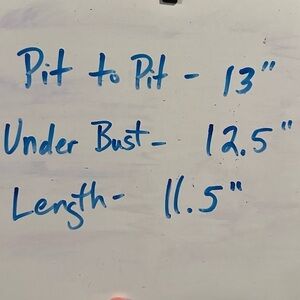 Pit to Pit - 13"
Under Bust - 12.5"
Length - 11.5"